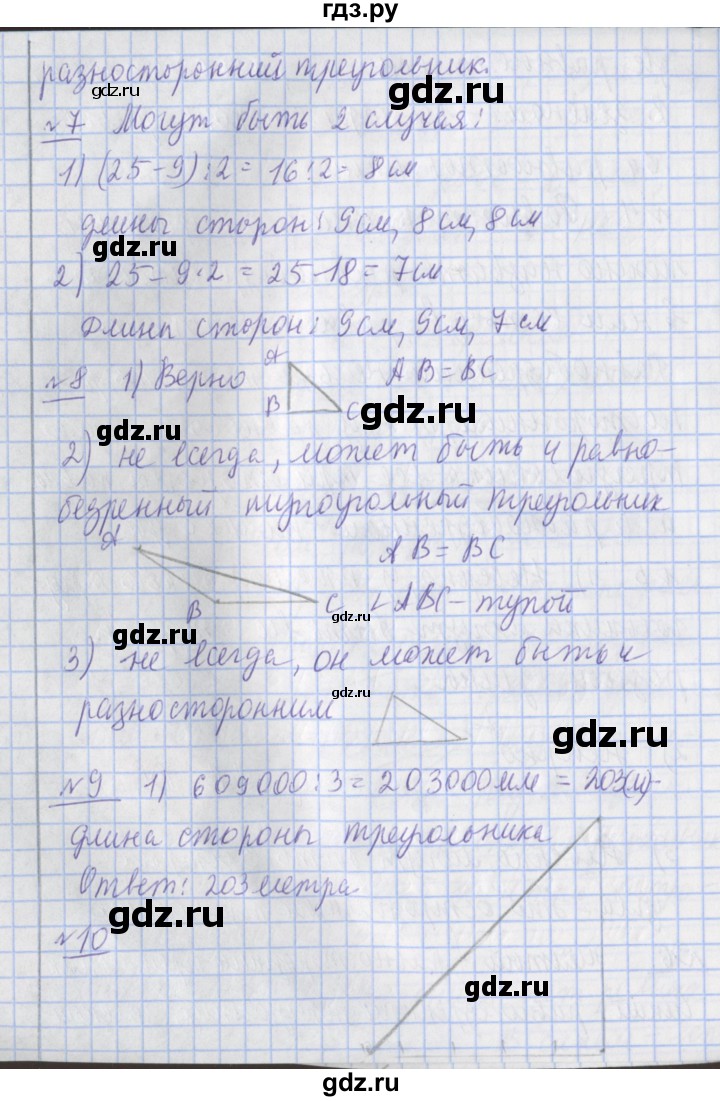 гдз.ру
разносторонний треугольник.
gdz.ru
gdz.ru
№7 Могут быть 2 случая:
1) (25-9):2=16:2=8см
длины сторон: 9см, 8см, 8см
gdz.ru
gdz.ru
2) 25-9·2=25-18=7см
Длины сторон: 9см, 9см, 7см
№8 1) Верно A B C AB=BC
gdz.ru
2) не всегда, может быть и равно-
бедренный тупоугольный треугольник
A B C AB=BC
∠ABC-тупой
gdz.ru
gdz.ru
3) не всегда, он может быть и
разносторонним
gdz.ru
gdz.ru
№9 1) 609000:3=203000мм=203(м)-
длина стороны треугольника
Ответ: 203 метра
gdz.ru
№10
gdz.ru
gdz.ru